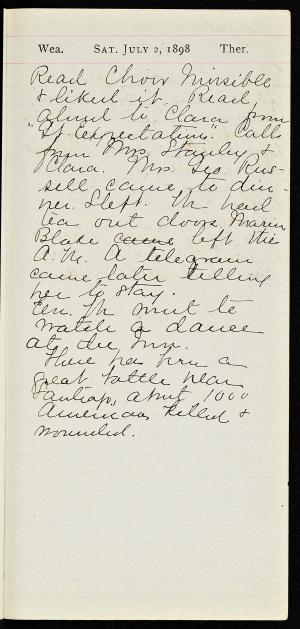 Wea. SAT. JULY 2, 1898 Ther.
Read Choir Invisible
& liked it. Read
aloud to Clara from
"Gt. Expectations". Calls
from Mrs. Stanley &
Clara. Mrs. Geo. Rus-
sell came to din-
ner. Slept. We had
tea out doors. Marion
Blake came left this
A.M. A telegram
came later telling
her to stay.
Eve. We went to
watch a dance
at the Inn.
There has been a
great battle near
Santiago, about 1000
Americans killed &
wounded.